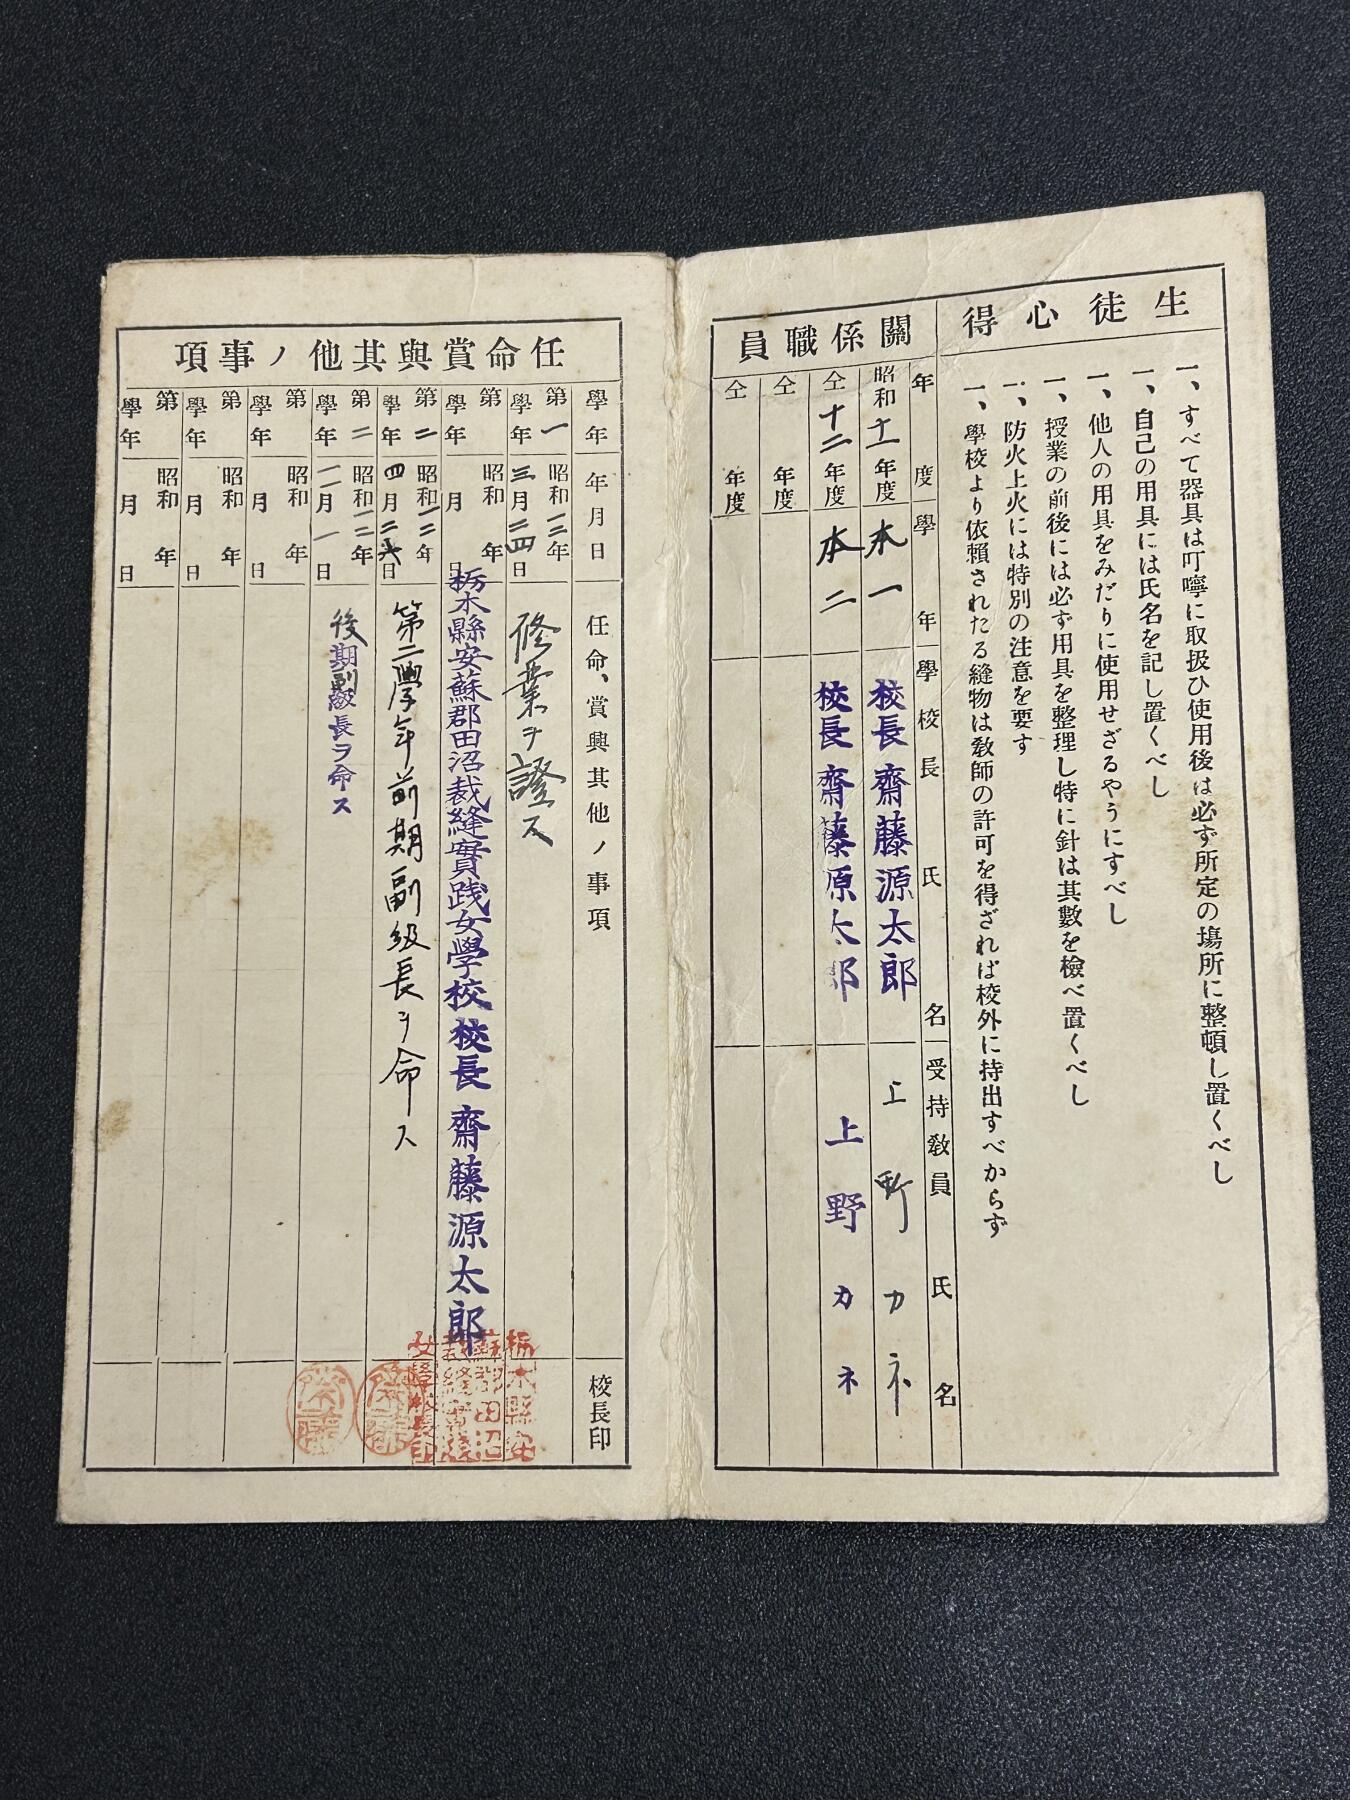 生徒心得
一、すべて器具は叮嚀に取扱ひ使用後は必ず所定の塲所に整頓し置くべし
一、自己の用具には氏名を記し置くべし
一、他人の用具をみだりに使用せざるやうにすべし
一、授業の前後には必ず用具を整理し特に針は其數を檢べ置くべし
一、防火上火には特別の注意を要す
一、學校より依賴されたる縫物は敎師の許可を得ざれば校外に持出すべからず
關係職員
年度 學年 學校長氏名 受持敎員氏名
昭和十一年度 本一 校長 齋藤源太郎 上野カネ
仝十二年度 本二 校長 齋藤原太郎 上野カネ
仝 年度
仝 年度
任命賞與其他ノ事項
學年 年月日 任命、賞與其他ノ事項 校長印
第一學年 昭和一二年三月二四日 修業ヲ證ス
第 學年 昭和 年 月 日 栃木縣安蘇郡田沼裁縫實践女學校校長 齋藤源太郎
第二學年 昭和一二年四月二六日 第二學年前期副級長ヲ命ス
第二學年 昭和一二年一一月一日 後期副級長ヲ命ス
第 學年 昭和 年 月 日
第 學年 昭和 年 月 日
第 學年 昭和 年 月 日